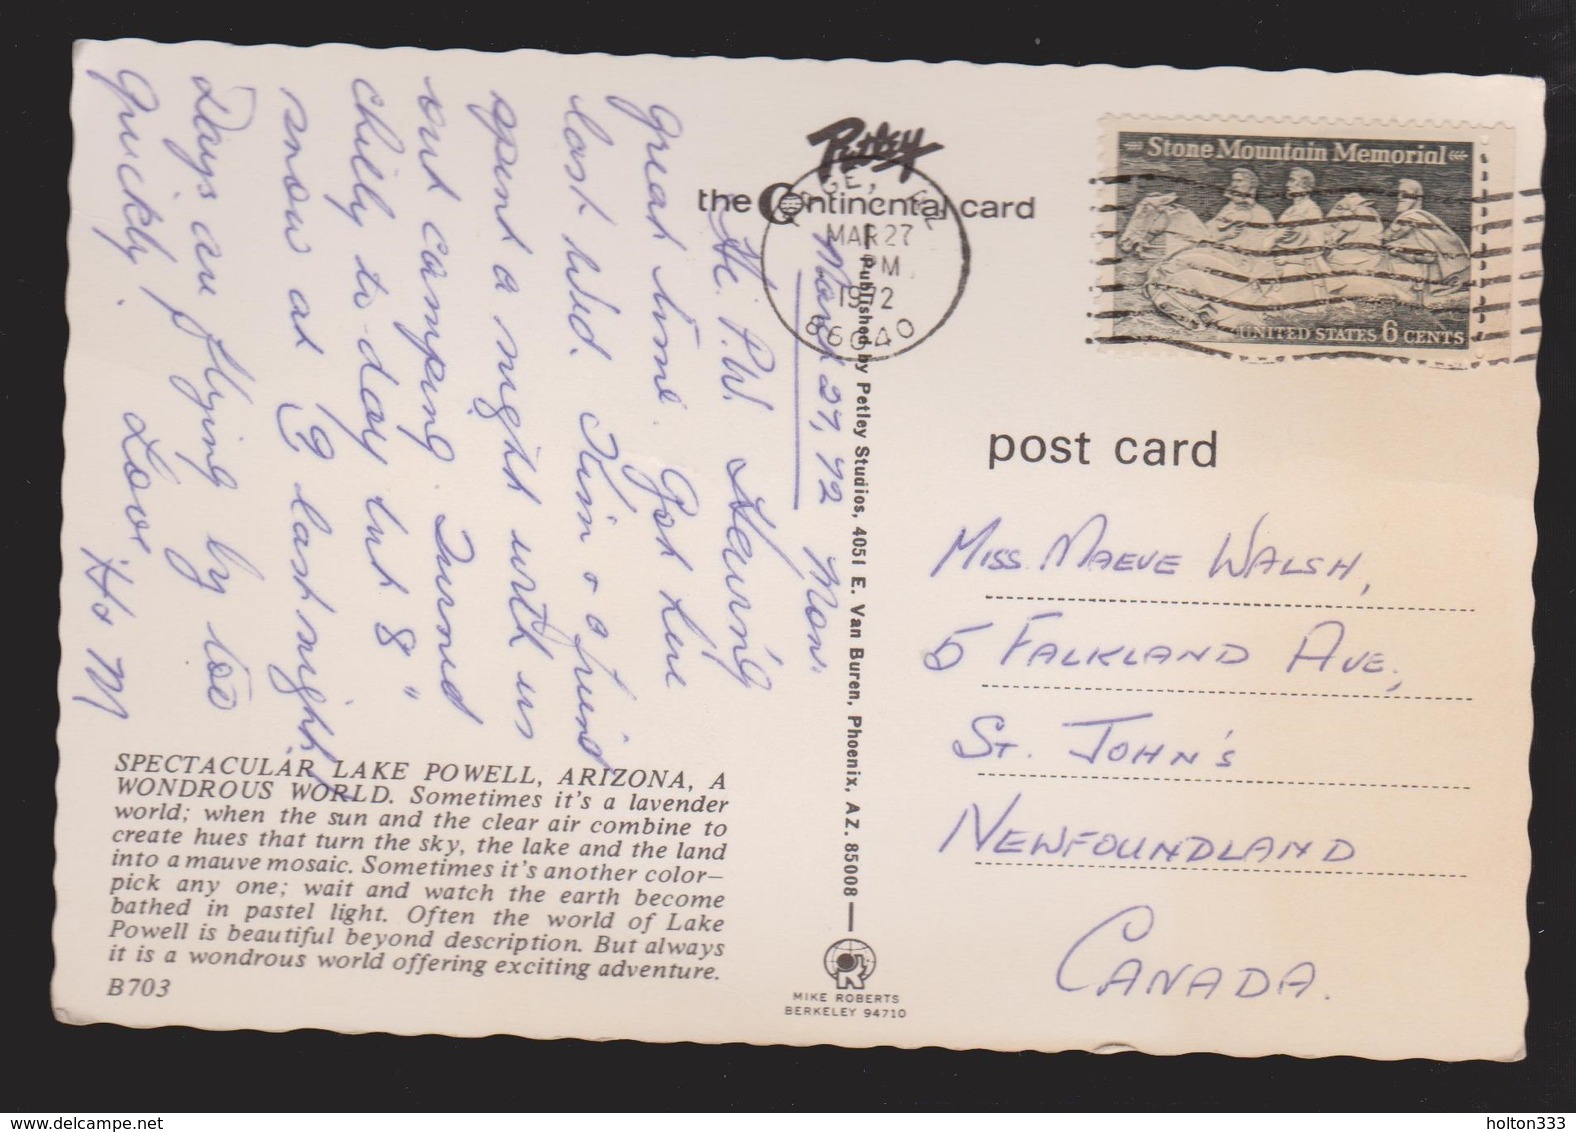 Petley
the Continental card
MAR 27
PM
1972
86040
Stone Mountain Memorial
UNITED STATES 6 CENTS
post card
Mon.
March 27, 72
Hi P.W. Having
great time. Got here
last Wed. Kim & a friend
spent a night with us
out camping. Turned
chilly to-day but 8"
snow at G last night,
Days are flying by too
quickly.
Love
H & M
Published by Petley Studios, 4051 E. Van Buren, Phoenix, AZ. 85008
MISS MAEVE WALSH,
5 FALKLAND AVE,
ST. JOHN'S
NEWFOUNDLAND
CANADA.
SPECTACULAR LAKE POWELL, ARIZONA, A
WONDROUS WORLD. Sometimes it's a lavender
world; when the sun and the clear air combine to
create hues that turn the sky, the lake and the land
into a mauve mosaic. Sometimes it's another color—
pick any one; wait and watch the earth become
bathed in pastel light. Often the world of Lake
Powell is beautiful beyond description. But always
it is a wondrous world offering exciting adventure.
B703
MIKE ROBERTS
BERKELEY 94710
holton333